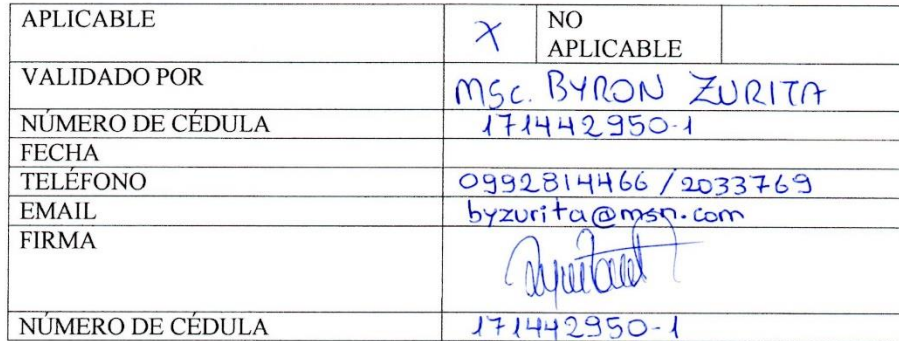 APLICABLE X NO APLICABLE
VALIDADO POR MSc. BYRON ZURITA
NÚMERO DE CÉDULA 171442950-1
FECHA
TELÉFONO 0992814466 / 2033769
EMAIL byzurita@msn.com
FIRMA
NÚMERO DE CÉDULA 171442950-1